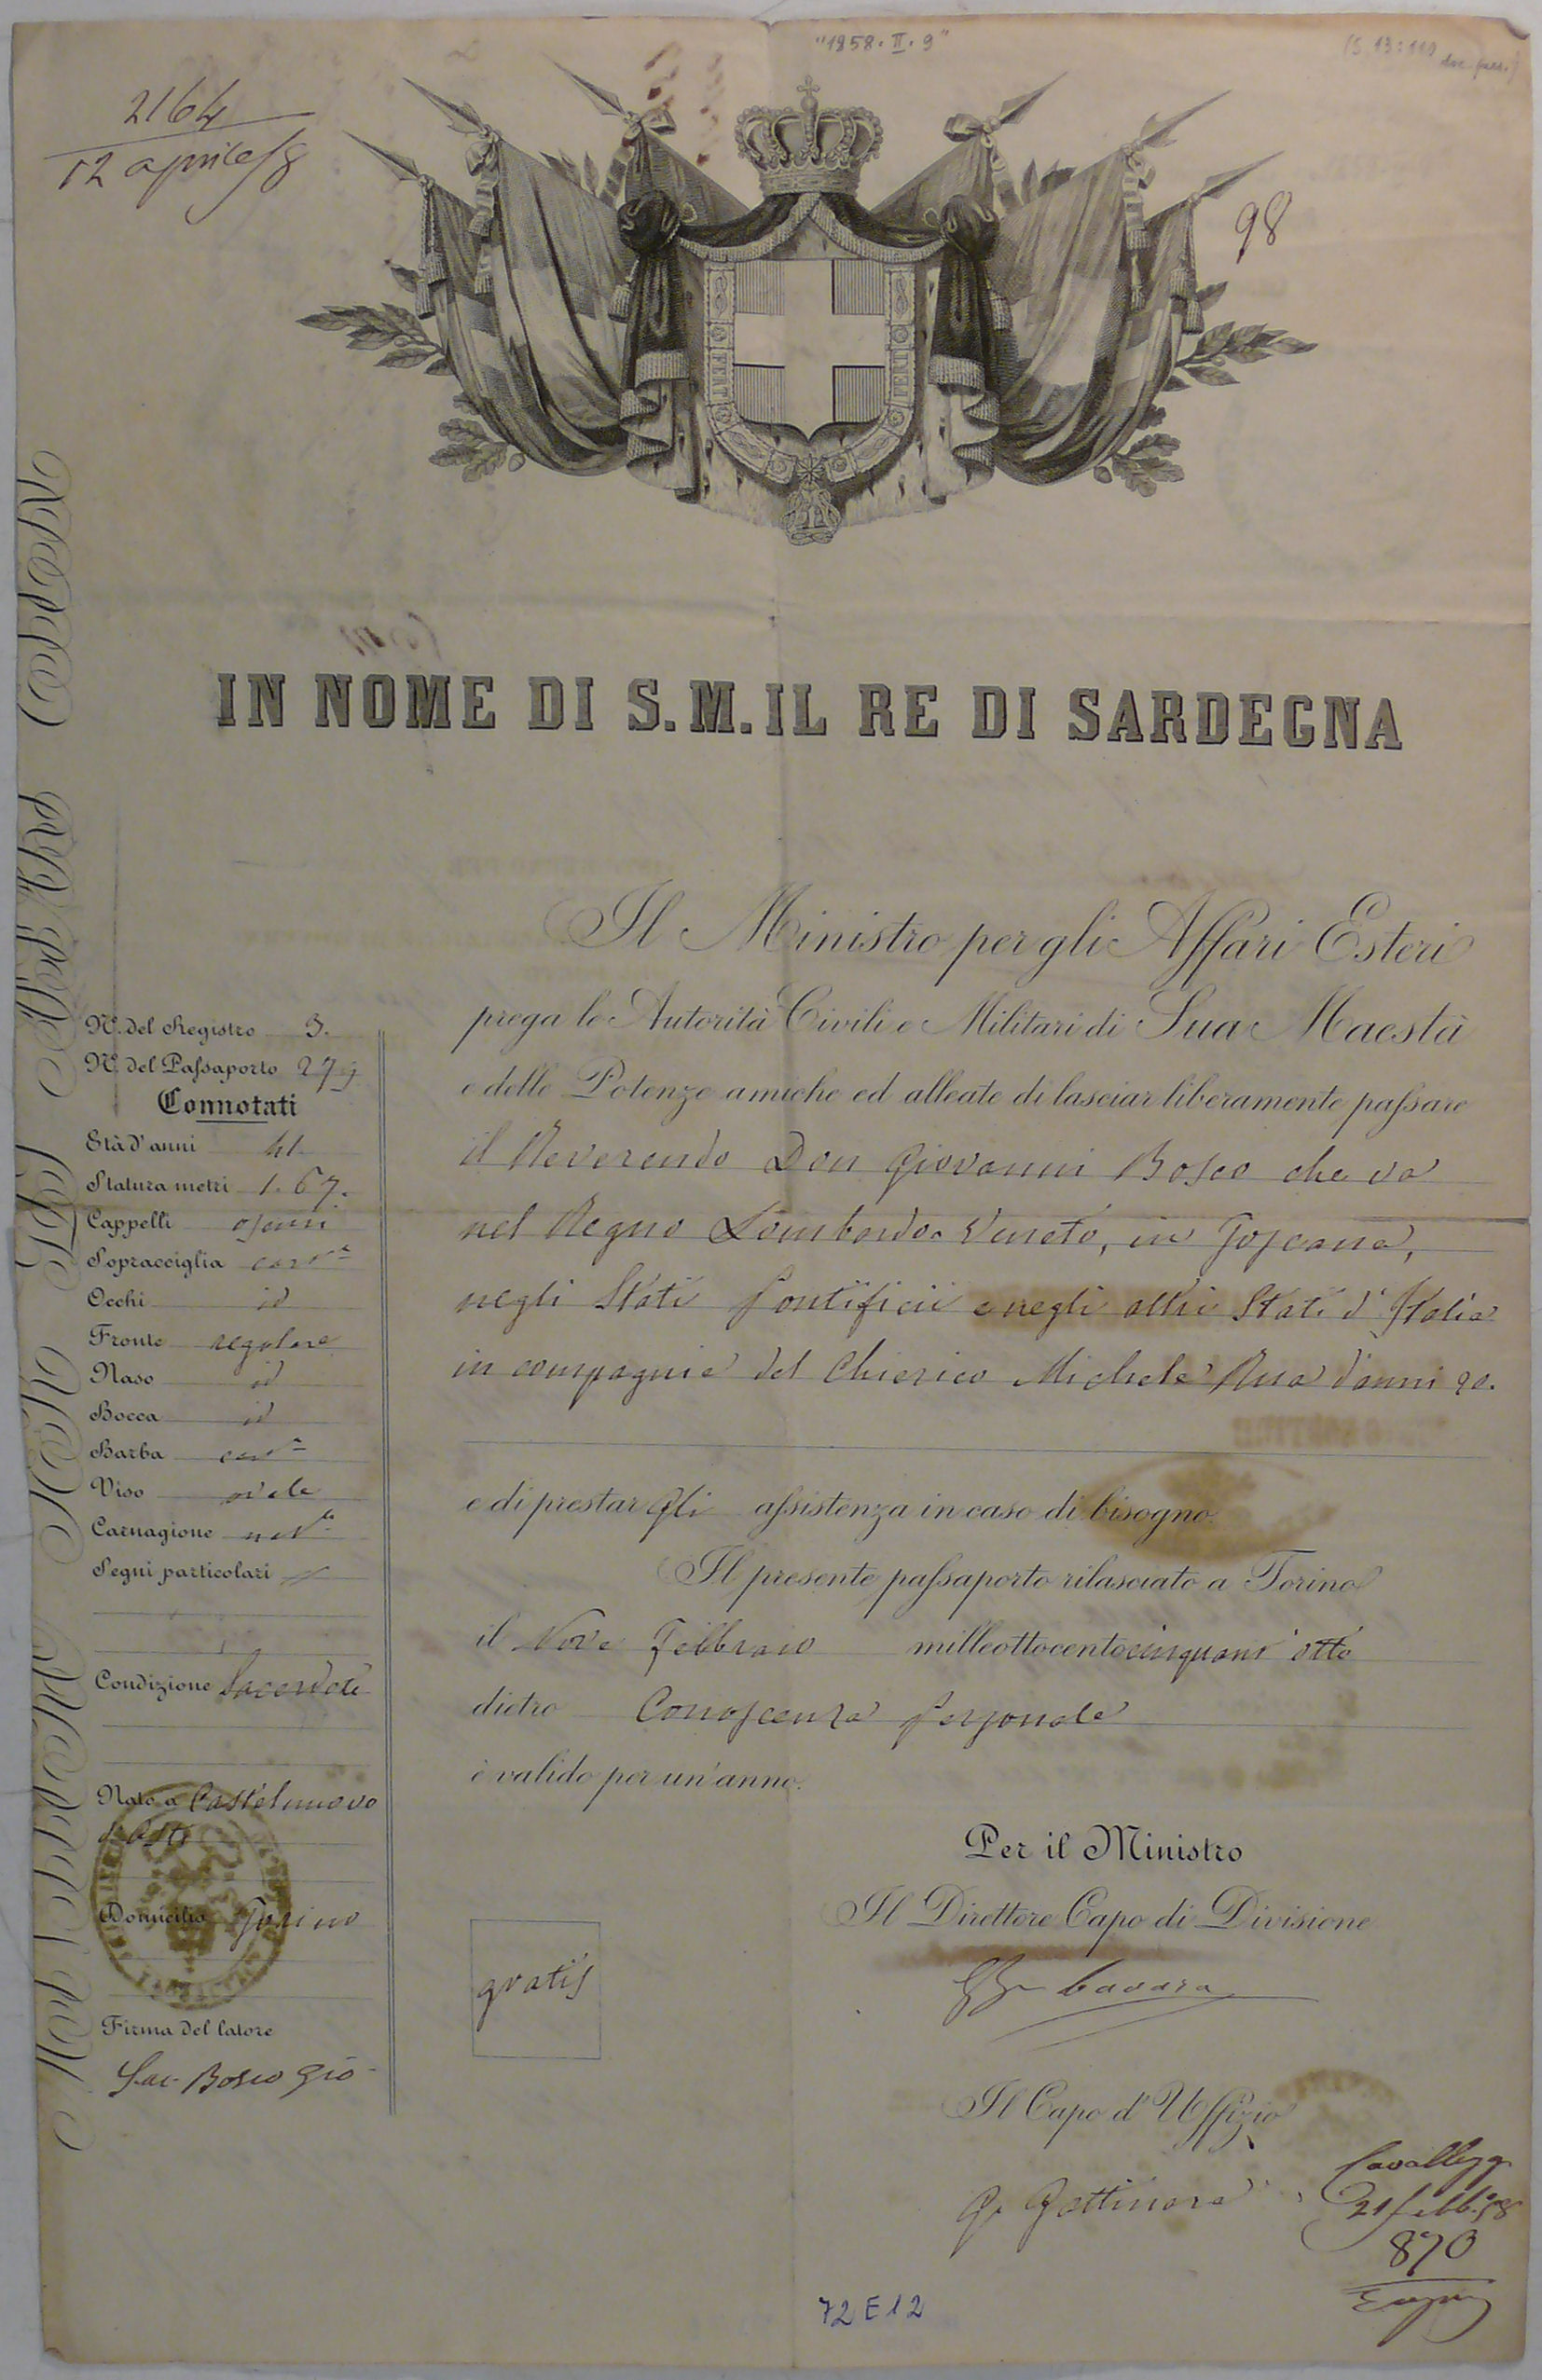 "1858. II. 9"
2164
12 aprile/8
98
FERT
FERT
IN NOME DI S.M. IL RE DI SARDEGNA
Il Ministro per gli Affari Esteri
prega le Autorità Civili e Militari di Sua Maestà
e delle Potenze amiche ed alleate di lasciar liberamente passare
il Reverendo Don Giovanni Bosco che va
nel Regno Lombardo-Veneto, in Toscana,
negli Stati Pontificii e negli altri Stati d'Italia
in compagnia del Chierico Michele Rua d'anni 20.
e di prestargli assistenza in caso di bisogno.
Il presente passaporto rilasciato a Torino
il Nove Febbraio millottocentocinquant'otto
dietro Conoscenza personale
è valido per un'anno.
Per il Ministro
Il Direttore Capo di Divisione
Il Capo d'Uffizio
G. Gattinara
N.º del Registro 3.
N.º del Passaporto 279
Connotati
Età d'anni 41.
Statura metri 1.67.
Cappelli oscuri
Sopracciglia
Occhi id
Fronte regolare
Naso id
Bocca id
Barba
Viso ovale
Carnagione
Segni particolari
Condizione Sacerdote
Nato a Castelnuovo
d'Asti
Domicilio Torino
Firma del latore
Sac. Bosco Gio
gratis
21 febb. 58
870
72E12